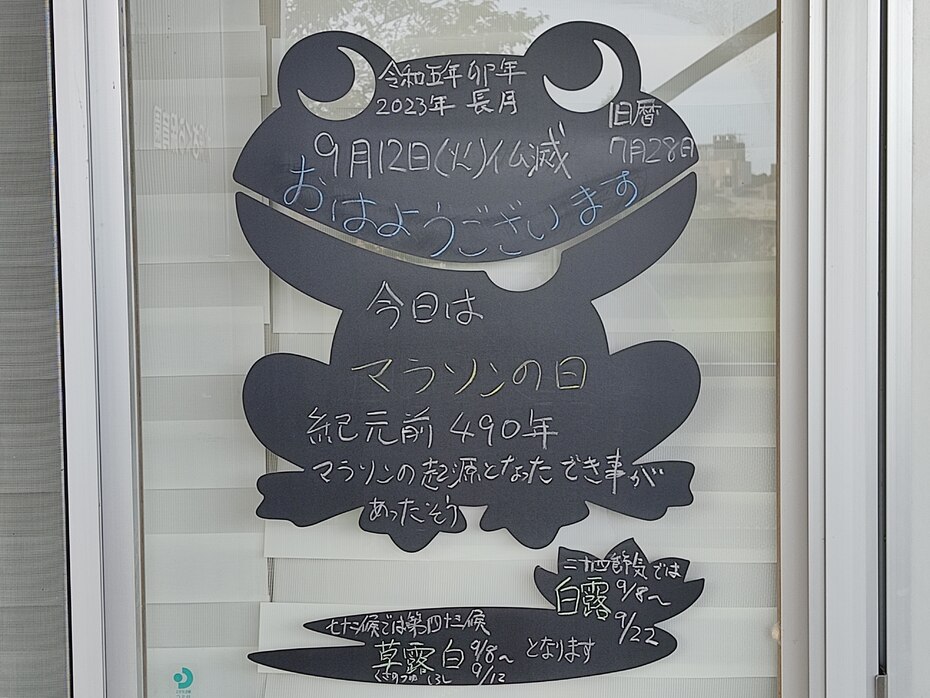 令和五年 卯年
2023年 長月
旧暦
7月28日
9月12日(火)仏滅
おはようございます
今日は
マラソンの日
紀元前 490年
マラソンの起源となったでき事が
あったそう
二十四節気では
白露 9/8〜
9/22
七十二候では第四十三候
草露白 9/8〜
くさのつゆ しろし 9/12
となります